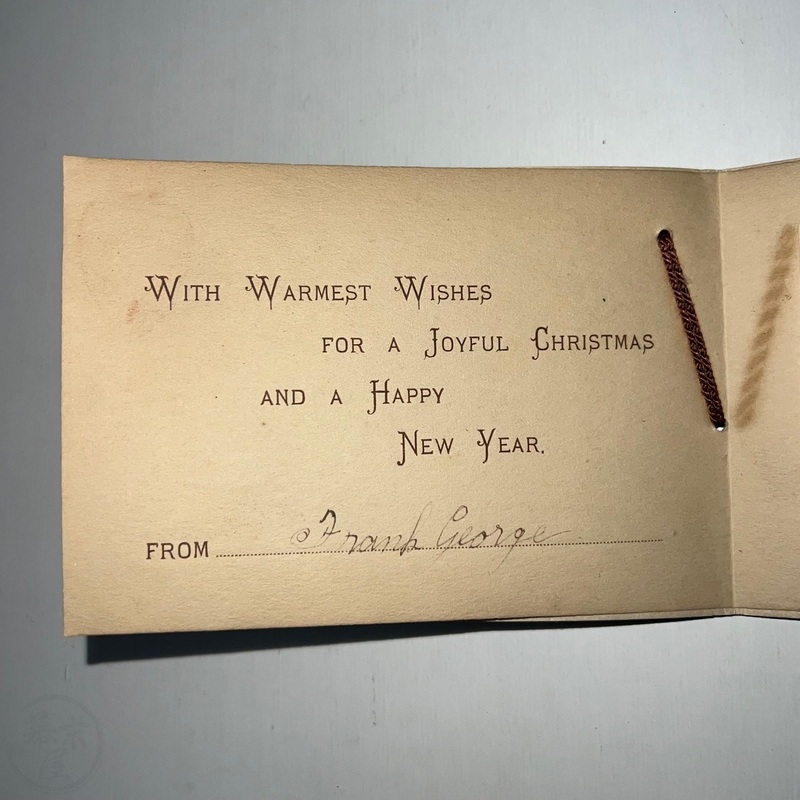 With Warmest Wishes
for a Joyful Christmas
and a Happy
New Year.
From Frank George